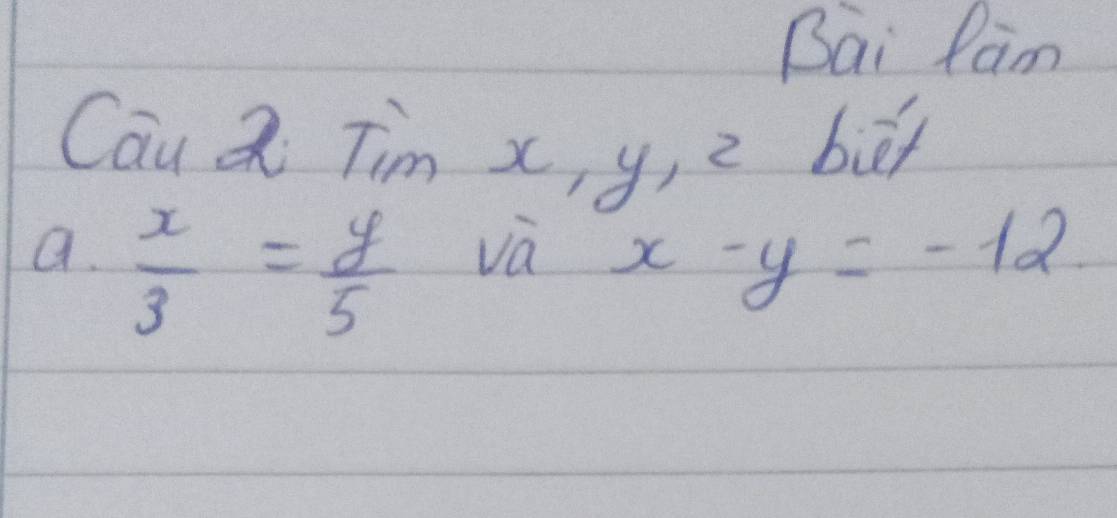 Bài làm
Câu 2: Tìm x, y, z biết
a. x/3 = y/5 và x - y = -12.